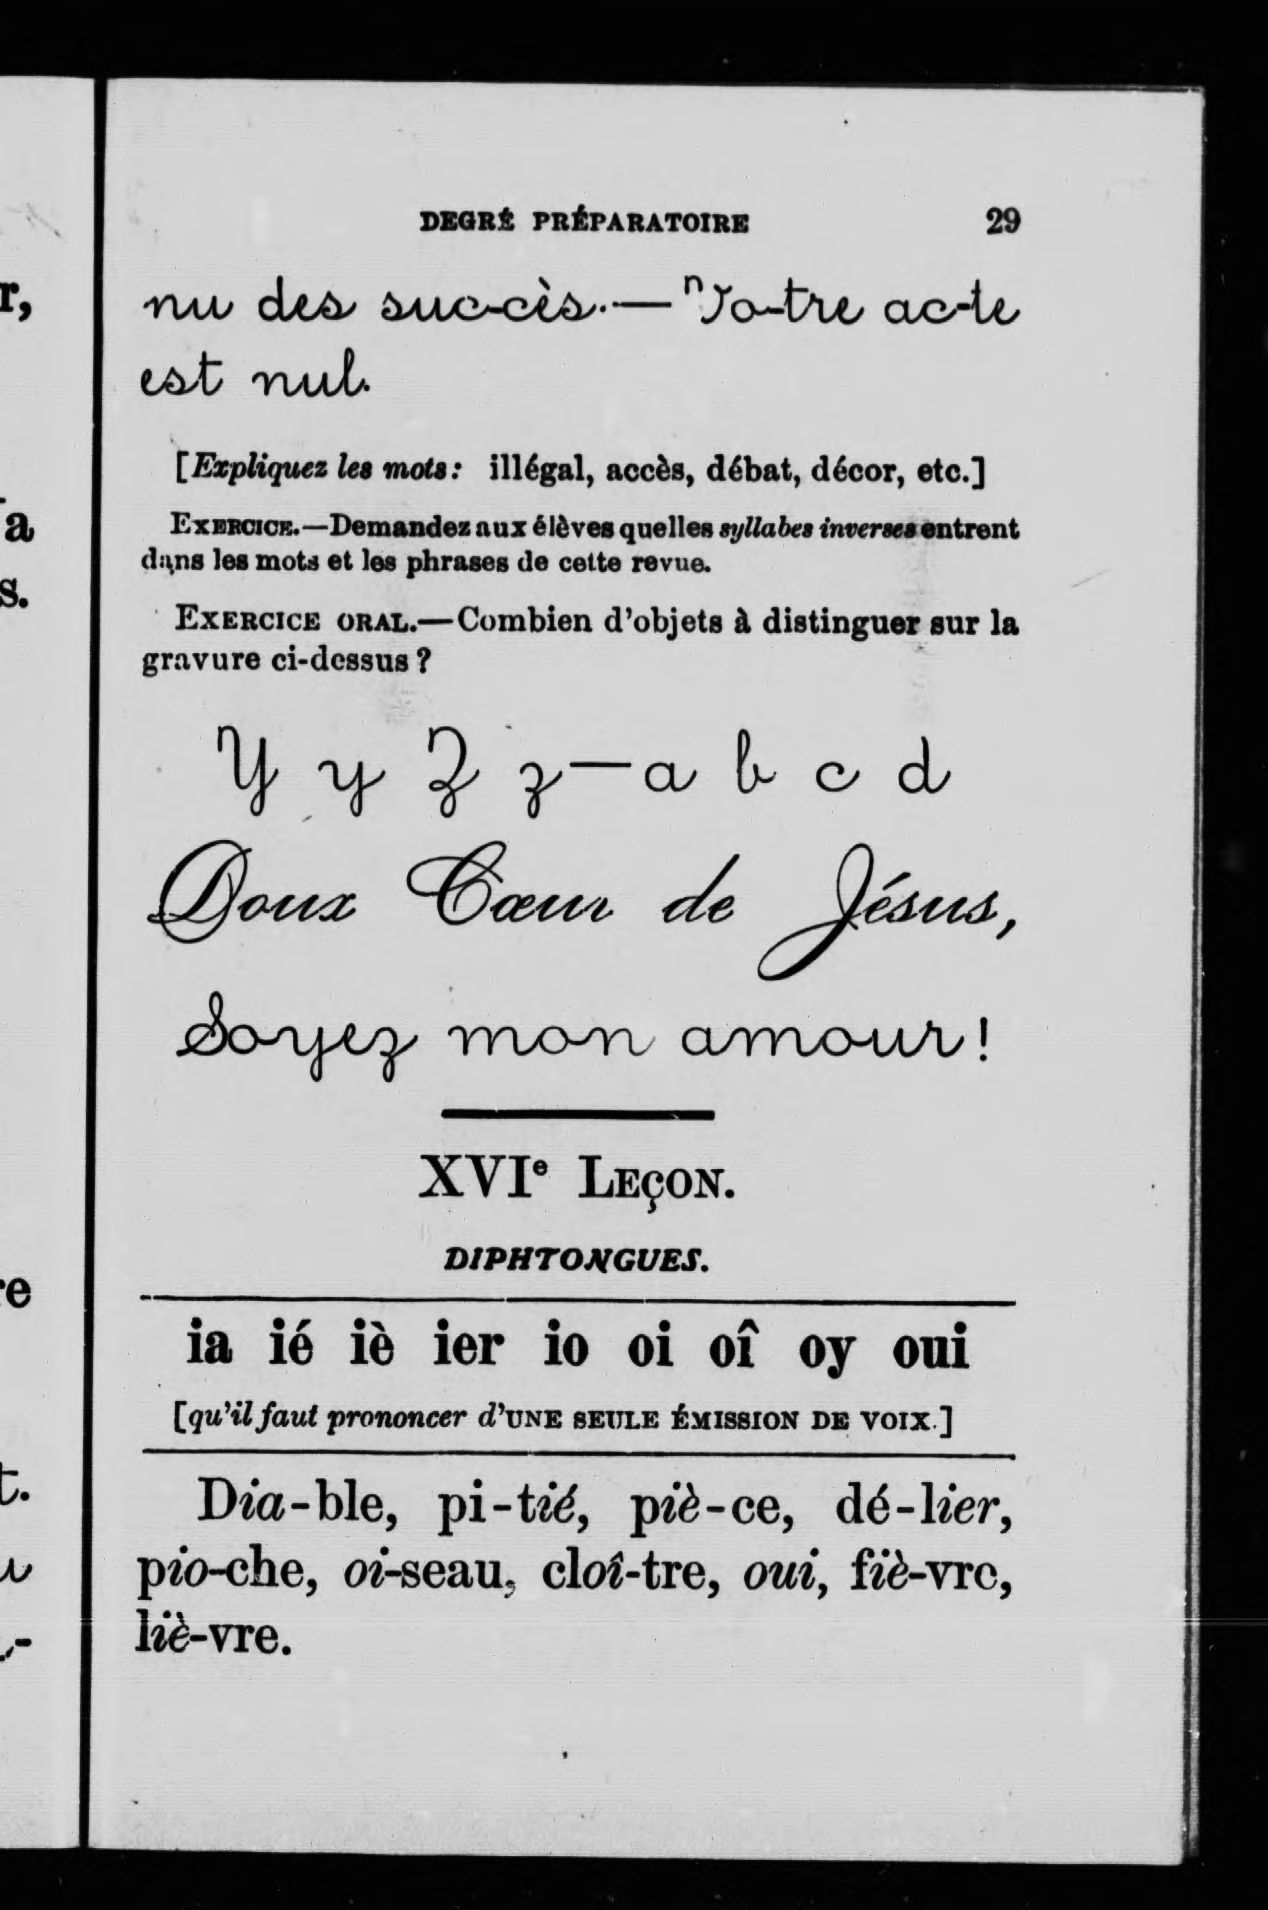 DEGRÉ PRÉPARATOIRE 29
nu des suc-cès.—Vo-tre ac-te
est nul.
[Expliquez les mots: illégal, accès, débat, décor, etc.]
EXERCICE.—Demandez aux élèves quelles syllabes inverses entrent
dans les mots et les phrases de cette revue.
EXERCICE ORAL.—Combien d'objets à distinguer sur la
gravure ci-dessus?
Y y Z z—a b c d
Doux Cœur de Jésus,
Soyez mon amour!
XVIe LEÇON.
DIPHTONGUES.
ia ié iè ier io oi oî oy oui
[qu'il faut prononcer d'UNE SEULE ÉMISSION DE VOIX.]
Dia-ble, pi-tié, piè-ce, dé-lier,
pio-che, oi-seau, cloî-tre, oui, fiè-vre,
liè-vre.